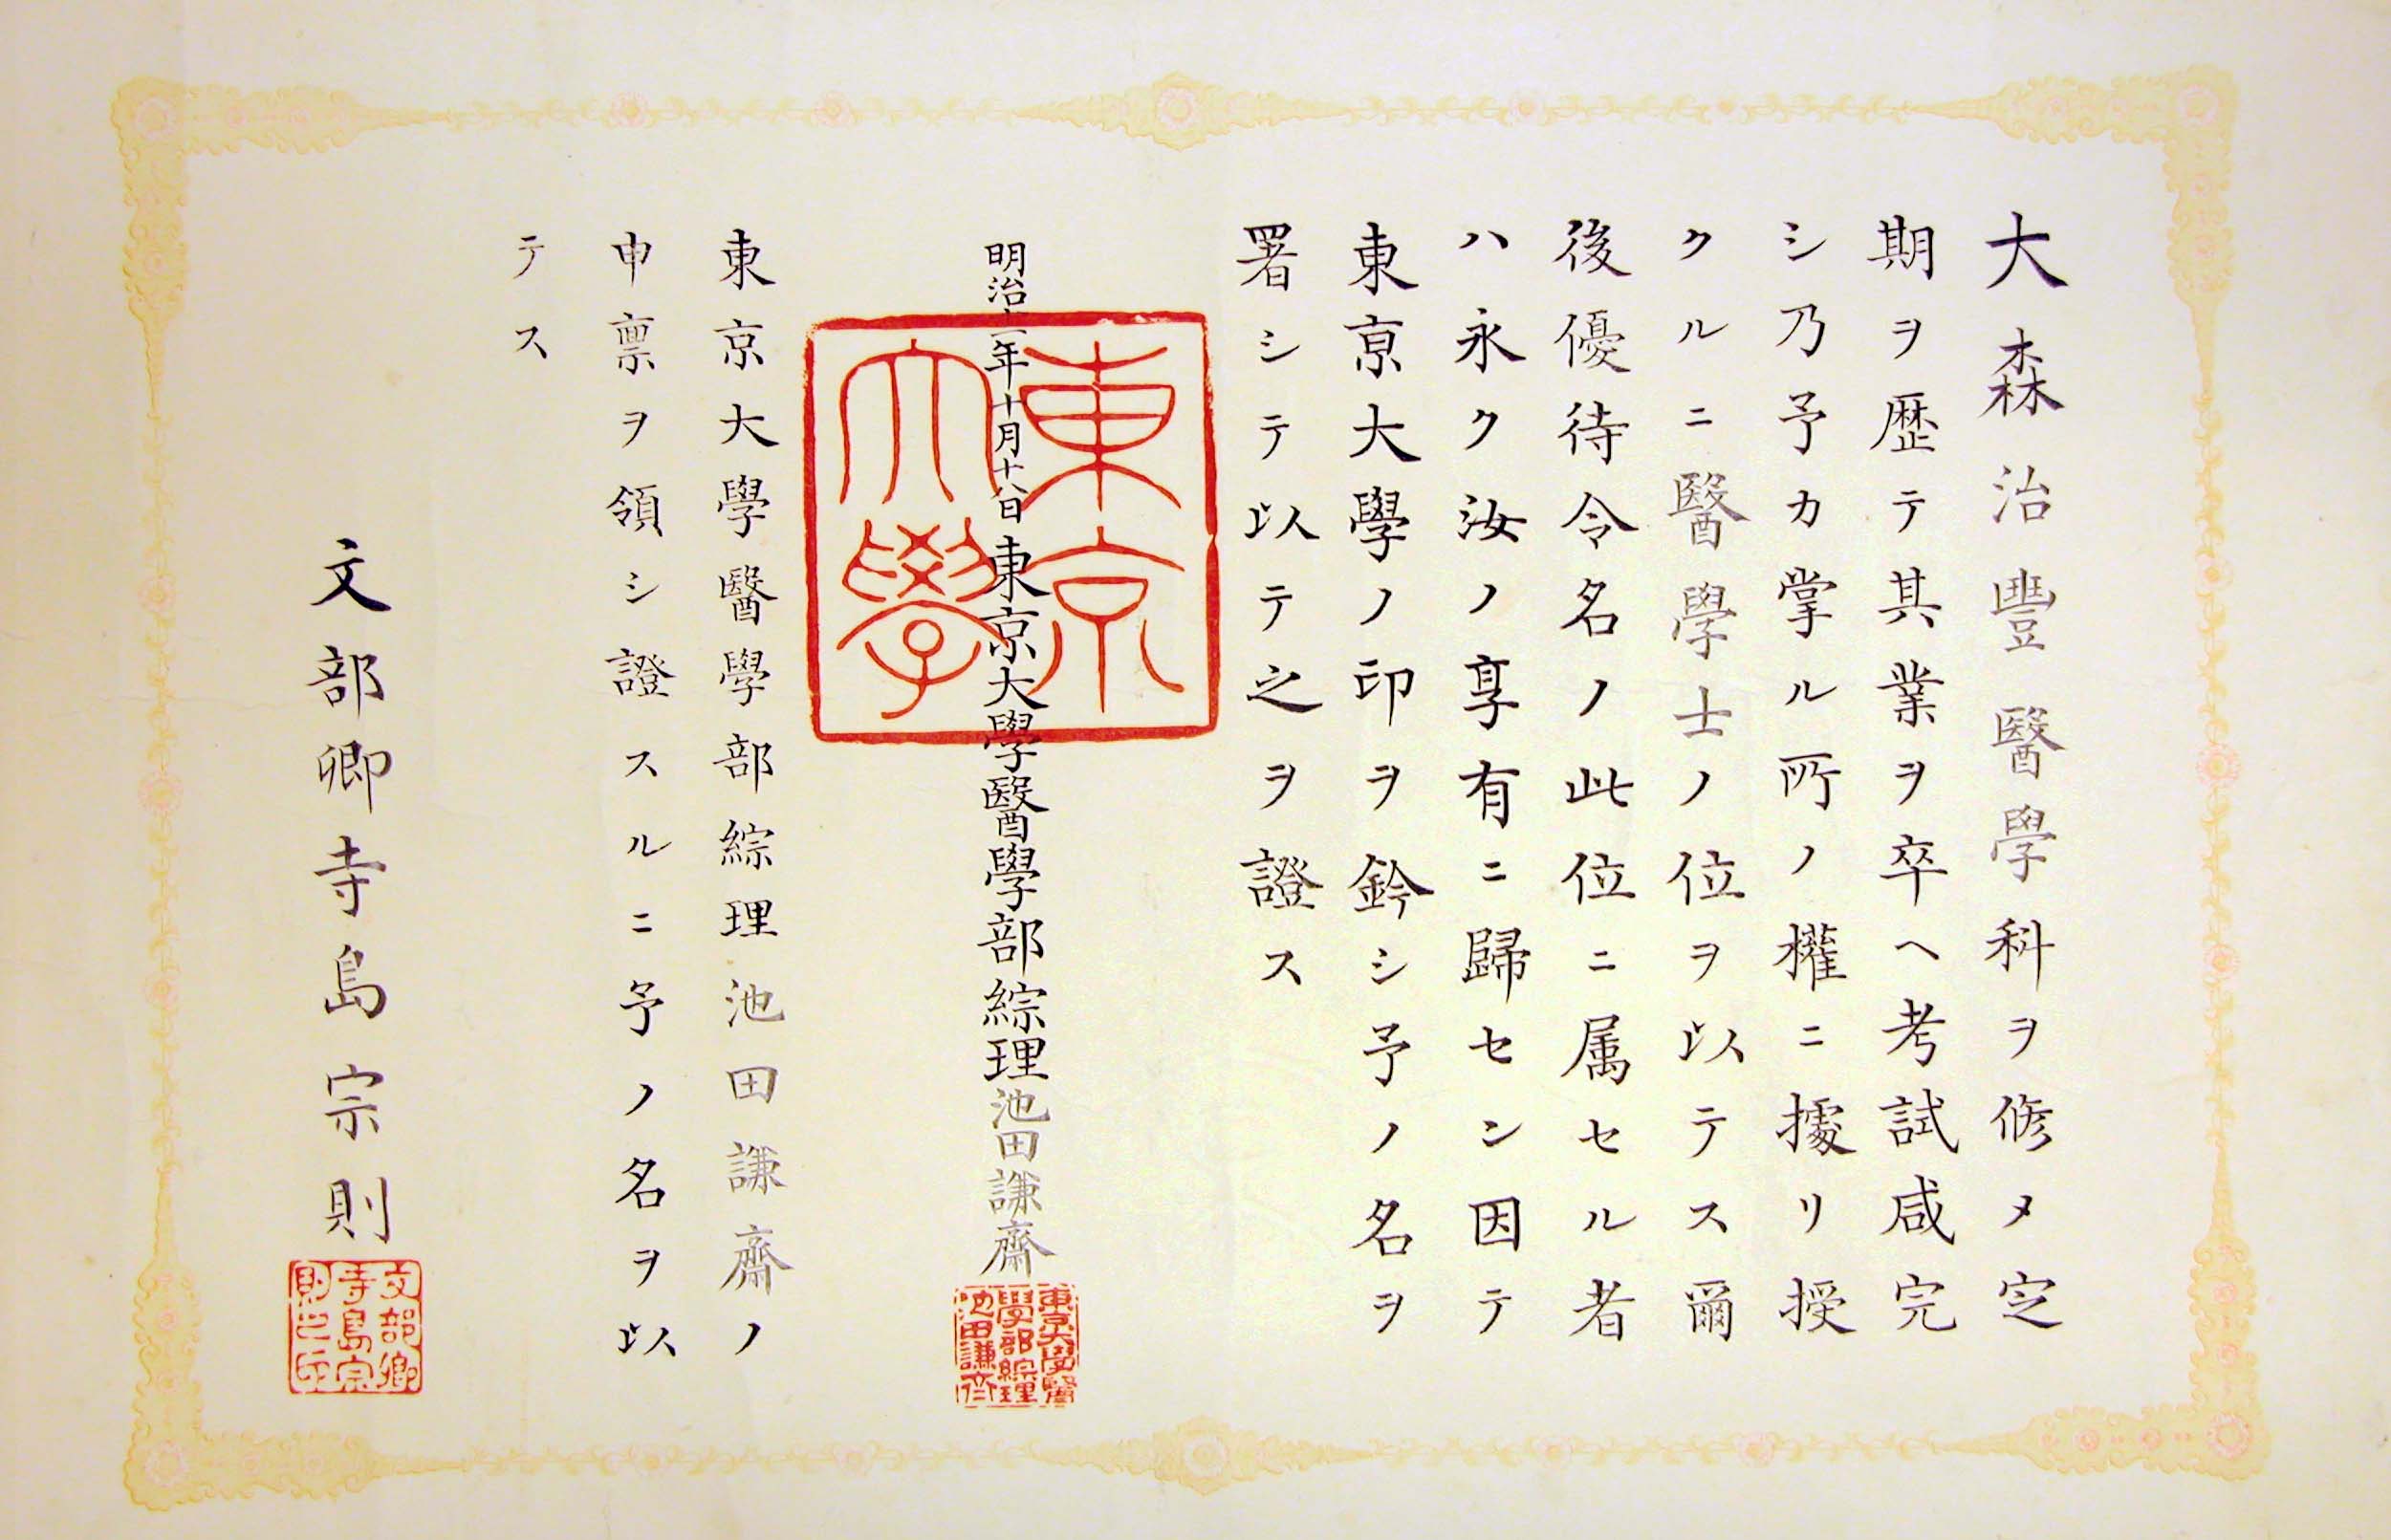 大森治豐醫學科ヲ修メ定
期ヲ歴テ其業ヲ卒ヘ考試咸完
シ乃予カ掌ル所ノ權ニ據リ授
クルニ醫學士ノ位ヲ以テス爾
後優待令名ノ此位ニ属セル者
ハ永ク汝ノ享有ニ歸セン因テ
東京大學ノ印ヲ鈐シ予ノ名ヲ
署シテ以テ之ヲ證ス
明治十二年十月十八日東京大學醫學部綜理池田謙齋
東京大學
東京大學醫學部綜理池田謙齊
東京大學醫學部綜理池田謙齋ノ
申禀ヲ領シ證スルニ予ノ名ヲ以
テス
文部卿寺島宗則
文部卿寺島宗則之印